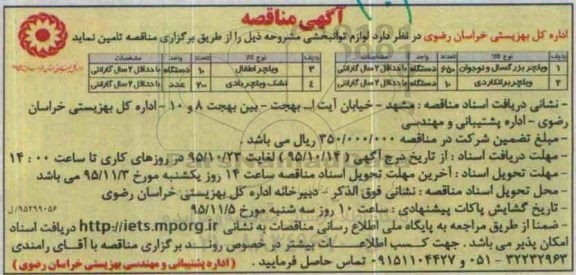 آگهی مناقصه
اداره کل بهزیستی خراسان رضوی در نظر دارد لوازم توانبخشی مشروحه ذیل را از طریق برگزاری مناقصه تامین نماید
ردیف نوع کالا تعداد واحد مشخصات
۱ ویلچر بزرگسال و نوجوان ۶۵۰ دستگاه با حداقل ۲ سال گارانتی
۲ ویلچر برانکاردی ۱۰ دستگاه با حداقل ۲ سال گارانتی
ردیف نوع کالا تعداد واحد مشخصات
۳ ویلچر اطفال ۱۰ دستگاه با حداقل ۲ سال گارانتی
۴ تشک ویلچر بادی ۲۰۰ عدد با حداقل ۲ سال گارانتی
- نشانی دریافت اسناد مناقصه : مشهد - خیابان آیت اله بهجت - بین بهجت ۸ و ۱۰ - اداره کل بهزیستی خراسان
رضوی - اداره پشتیبانی و مهندسی
- مبلغ تضمین شرکت در مناقصه ۳۵۰/۰۰۰/۰۰۰ ریال می باشد .
- مهلت دریافت اسناد : از تاریخ درج آگهی ( ۹۵/۱۰/۱۴ ) لغایت ۹۵/۱۰/۲۳ در روزهای کاری تا ساعت ۰۰ : ۱۴
- مهلت تحویل اسناد : آخرین مهلت تحویل اسناد مناقصه ساعت ۱۴ روز یکشنبه مورخ ۹۵/۱۱/۳ می باشد
- محل تحویل اسناد مناقصه : نشانی فوق الذکر - دبیرخانه اداره کل بهزیستی خراسان رضوی
- تاریخ گشایش پاکات پیشنهادی : ساعت ۱۰ روز سه شنبه مورخ ۹۵/۱۱/۵
۹۵۲۹۹۰۵۶/ل
- ضمنا از طریق مراجعه به پایگاه ملی اطلاع رسانی مناقصات به نشانی http://iets.mporg.ir دریافت اسناد
امکان پذیر می باشد. جهت کسب اطلاعات بیشتر در خصوص روند برگزاری مناقصه با آقای رامندی
۳۲۲۳۲۹۶۳ - ۰۵۱ و ۰۹۱۵۱۱۰۴۴۲۷ تماس حاصل فرمایید . ( اداره پشتیبانی و مهندسی بهزیستی خراسان رضوی )